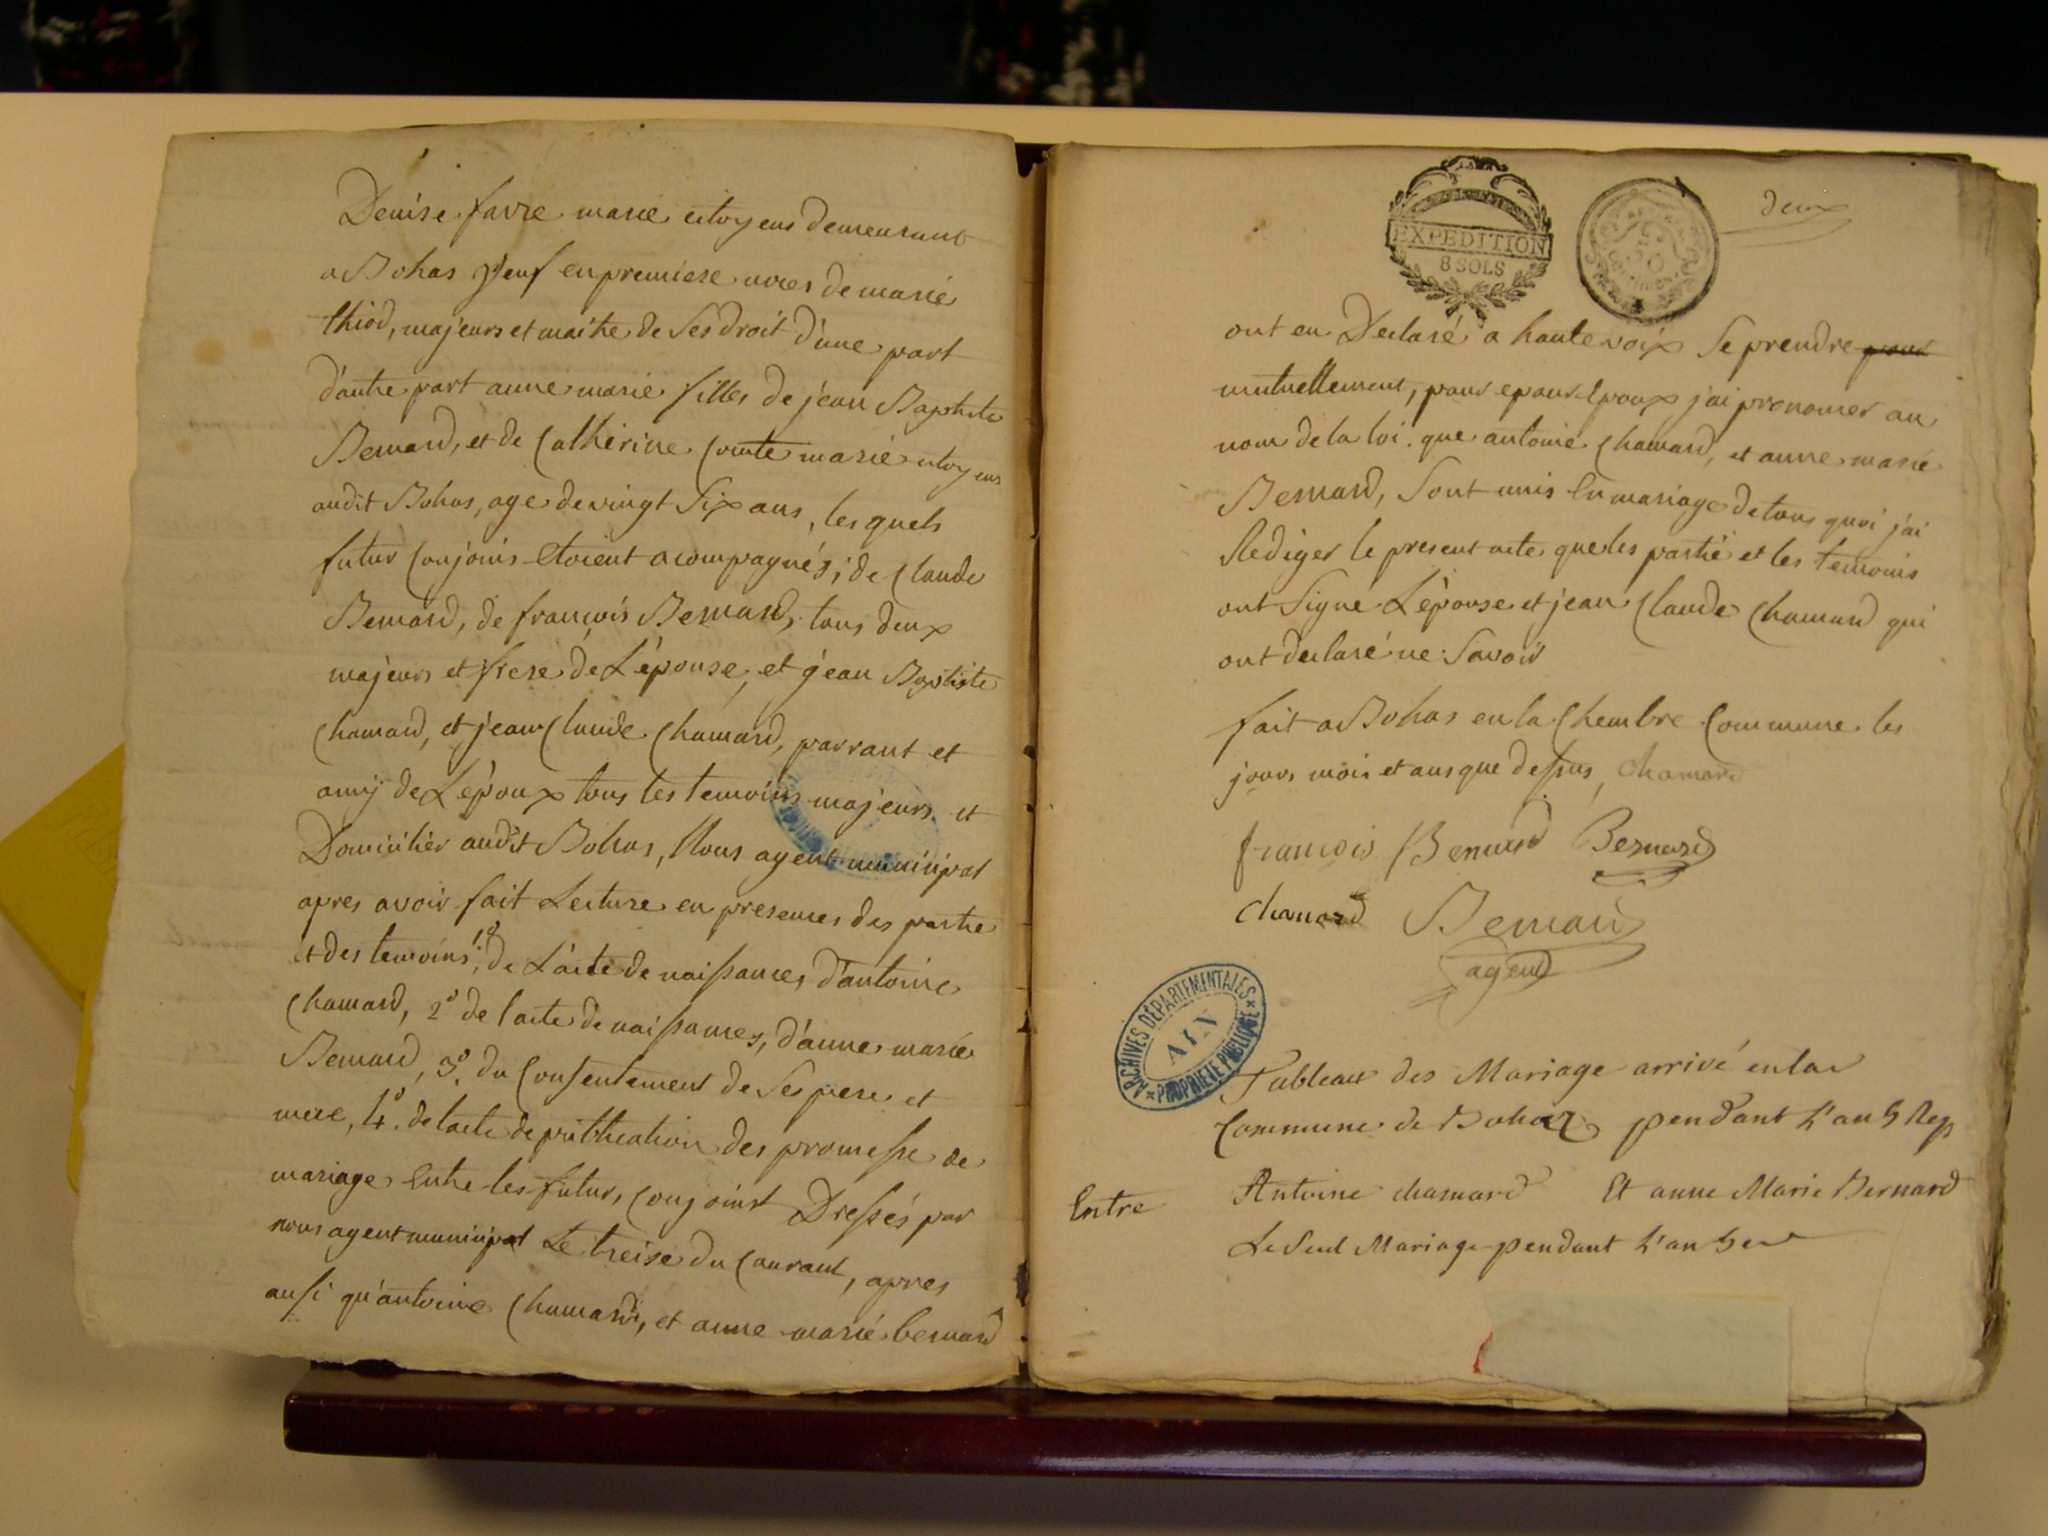 Denise favre marié citoyens demeurant
a Bohas veuf en premiere noces de marié
thiod, majeurs et maitre de ses droit d'une part
d'autre part anne marié filles de jean Baptiste
Bernard, et de Catherine Comte marié citoyens
audit Bohas, age de vingt six ans, les quels
futur Conjoins Etoient acompagnés; de Claude
Bernard, de françois Bernard, tous deux
majeurs et frere de L'épouse, et jean Baptiste
Chamard, et jean Claude Chamard, parrant et
amij de L'époux tous les temoins majeurs et
Domicilier audit Bohas, Nous agent municipal
apres avoir fait Lecture en presences des partie
et des temoins, 1º de L'acte de naissances d'antoine
Chamard, 2º de l'acte de naissances, d'anne marié
Bernard, 3º. du Consentement de Ses pere et
mere, 4º. de l'acte de publication des promesse de
mariage Entre les futur, Conjoinst Dressés par
nous agent municipal Le treise du Courant, apres
ausi qu'antoine Chamard, et anne marié bernard
EXPEDITION
8 SOLS
deux
ont eu Declaré a haute voix Se prendre pour
mutuellement, pour epouxs Epoux j'ai prononcer au
nom de la loi que antoine Chamard, et anne marié
Bernard, Sont unis En mariage de tous quoi j'ai
Rediger le present acte que les partié et les temoins
ont Signé L'épouse et jean Claude Chamard qui
ont declaré ne Savoir
fait a Bohas en la Chembre Commune les
jours mois et ans que dessus, Chamard
françois Bernard Bernard
Chamard Bernard
agent
ARCHIVES DÉPARTEMENTALES
AIN
PROPRIÉTÉ PUBLIQUE
Tableau des Mariage arrivé en la
Commune de Bohaz pendant L'an 5 Rep
Entre Antoine chamard Et anne Marie Bernard
Le Seul Mariage pendant L'an 5e